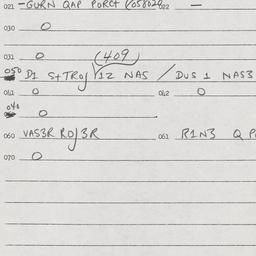 021 - GURN QAP PORCT 022 -
030 0
031 0 (409)
050 D1 S+TROJ Y1Z NAS / DUS 1 NAS3
041 0 042 0
040 0
060 VAS3R ROJ3R 061 R1N3 Q P
070 0